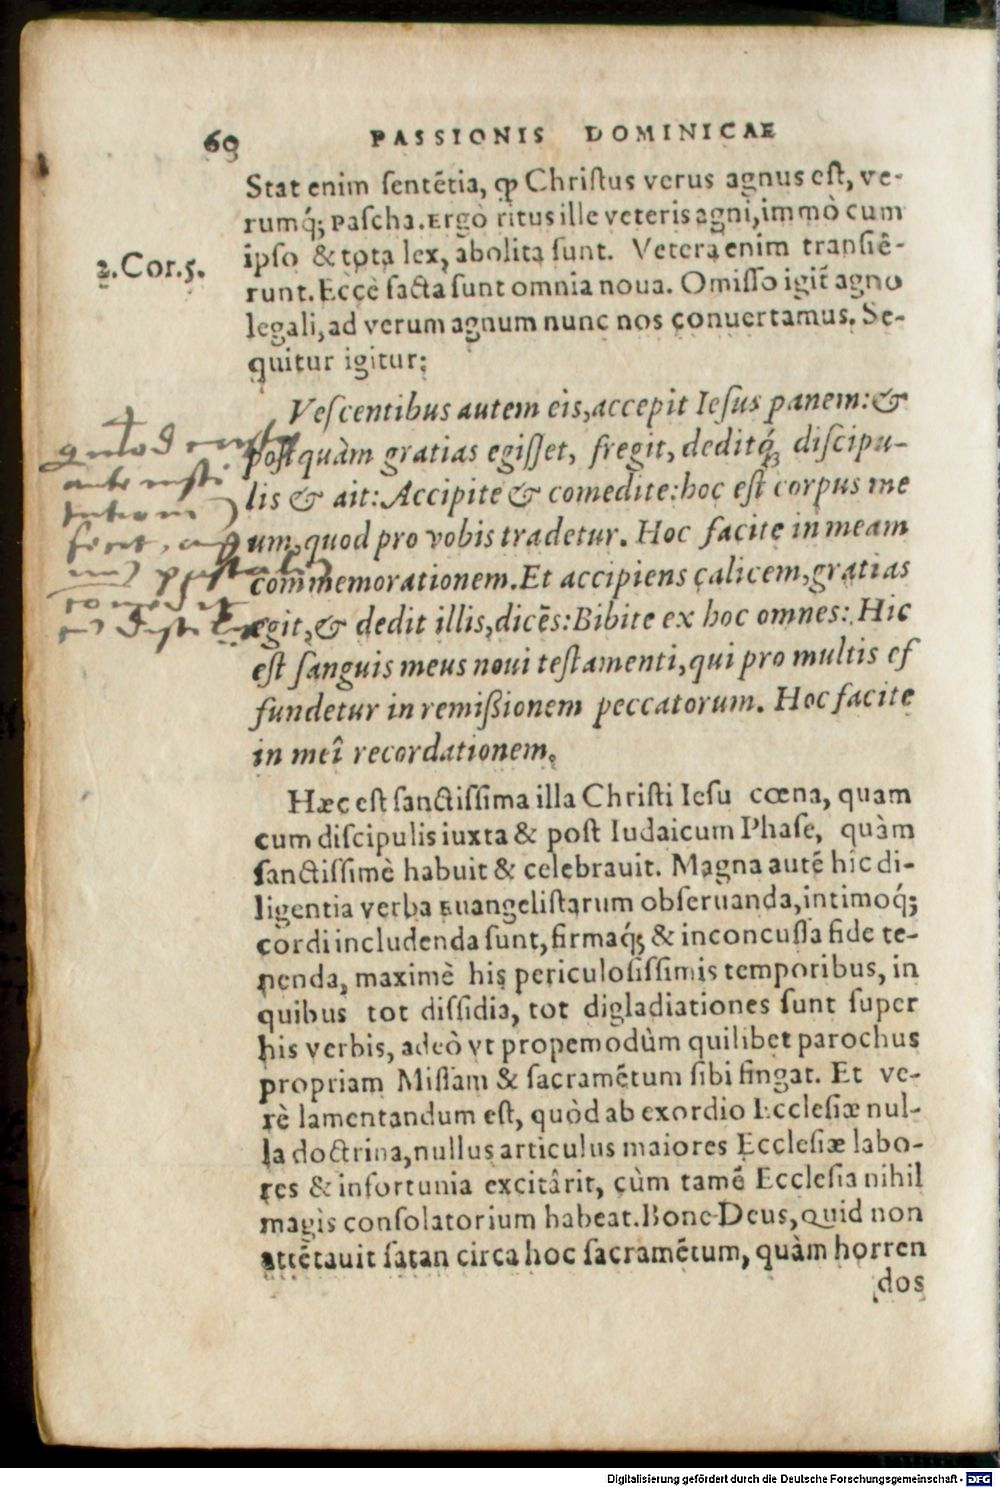 60 PASSIONIS DOMINICAE
Stat enim sentētia, ꝙ Christus verus agnus est, ve-
rumq́; Pascha. Ergò ritus ille veteris agni, immò cum
ipso & tota lex, abolita sunt. Vetera enim transiê-
2.Cor.5.
runt. Eccè facta sunt omnia noua. Omisso igit̃ agno
legali, ad verum agnum nunc nos cōuertamus. Se-
quitur igitur:
Vescentibus autem eis, accepit Iesus panem: &
postquàm gratias egisset, fregit, deditq́; discipu-
lis & ait: Accipite & comedite: hoc est corpus me
um, quod pro vobis tradetur. Hoc facite in meam
commemorationem. Et accipiens calicem, gratias
egit, & dedit illis, dicēs: Bibite ex hoc omnes: Hic
est sanguis meus noui testamenti, qui pro multis ef
fundetur in remißionem peccatorum. Hoc facite
in meî recordationem.
Hæc est sanctissima illa Christi Iesu cœna, quam
cum discipulis iuxta & post Iudaicum Phase, quàm
sanctissimè habuit & celebrauit. Magna autē hic di-
ligentia verba Euangelistarum obseruanda, intimoq́;
cordi includenda sunt, firmaq́; & inconcussa fide te-
nenda, maximè his periculosissimis temporibus, in
quibus tot dissidia, tot digladiationes sunt super
his verbis, adeò vt propemodùm quilibet parochus
propriam Missam & sacramētum sibi fingat. Et ve-
rè lamentandum est, quòd ab exordio Ecclesiæ nul-
la doctrina, nullus articulus maiores Ecclesiæ labo-
res & infortunia excitârit, cùm tamē Ecclesia nihil
magìs consolatorium habeat. Bone Deus, Quid non
attētauit satan circa hoc sacramētum, quàm horren
dos
Digitalisierung gefördert durch die Deutsche Forschungsgemeinschaft - DFG